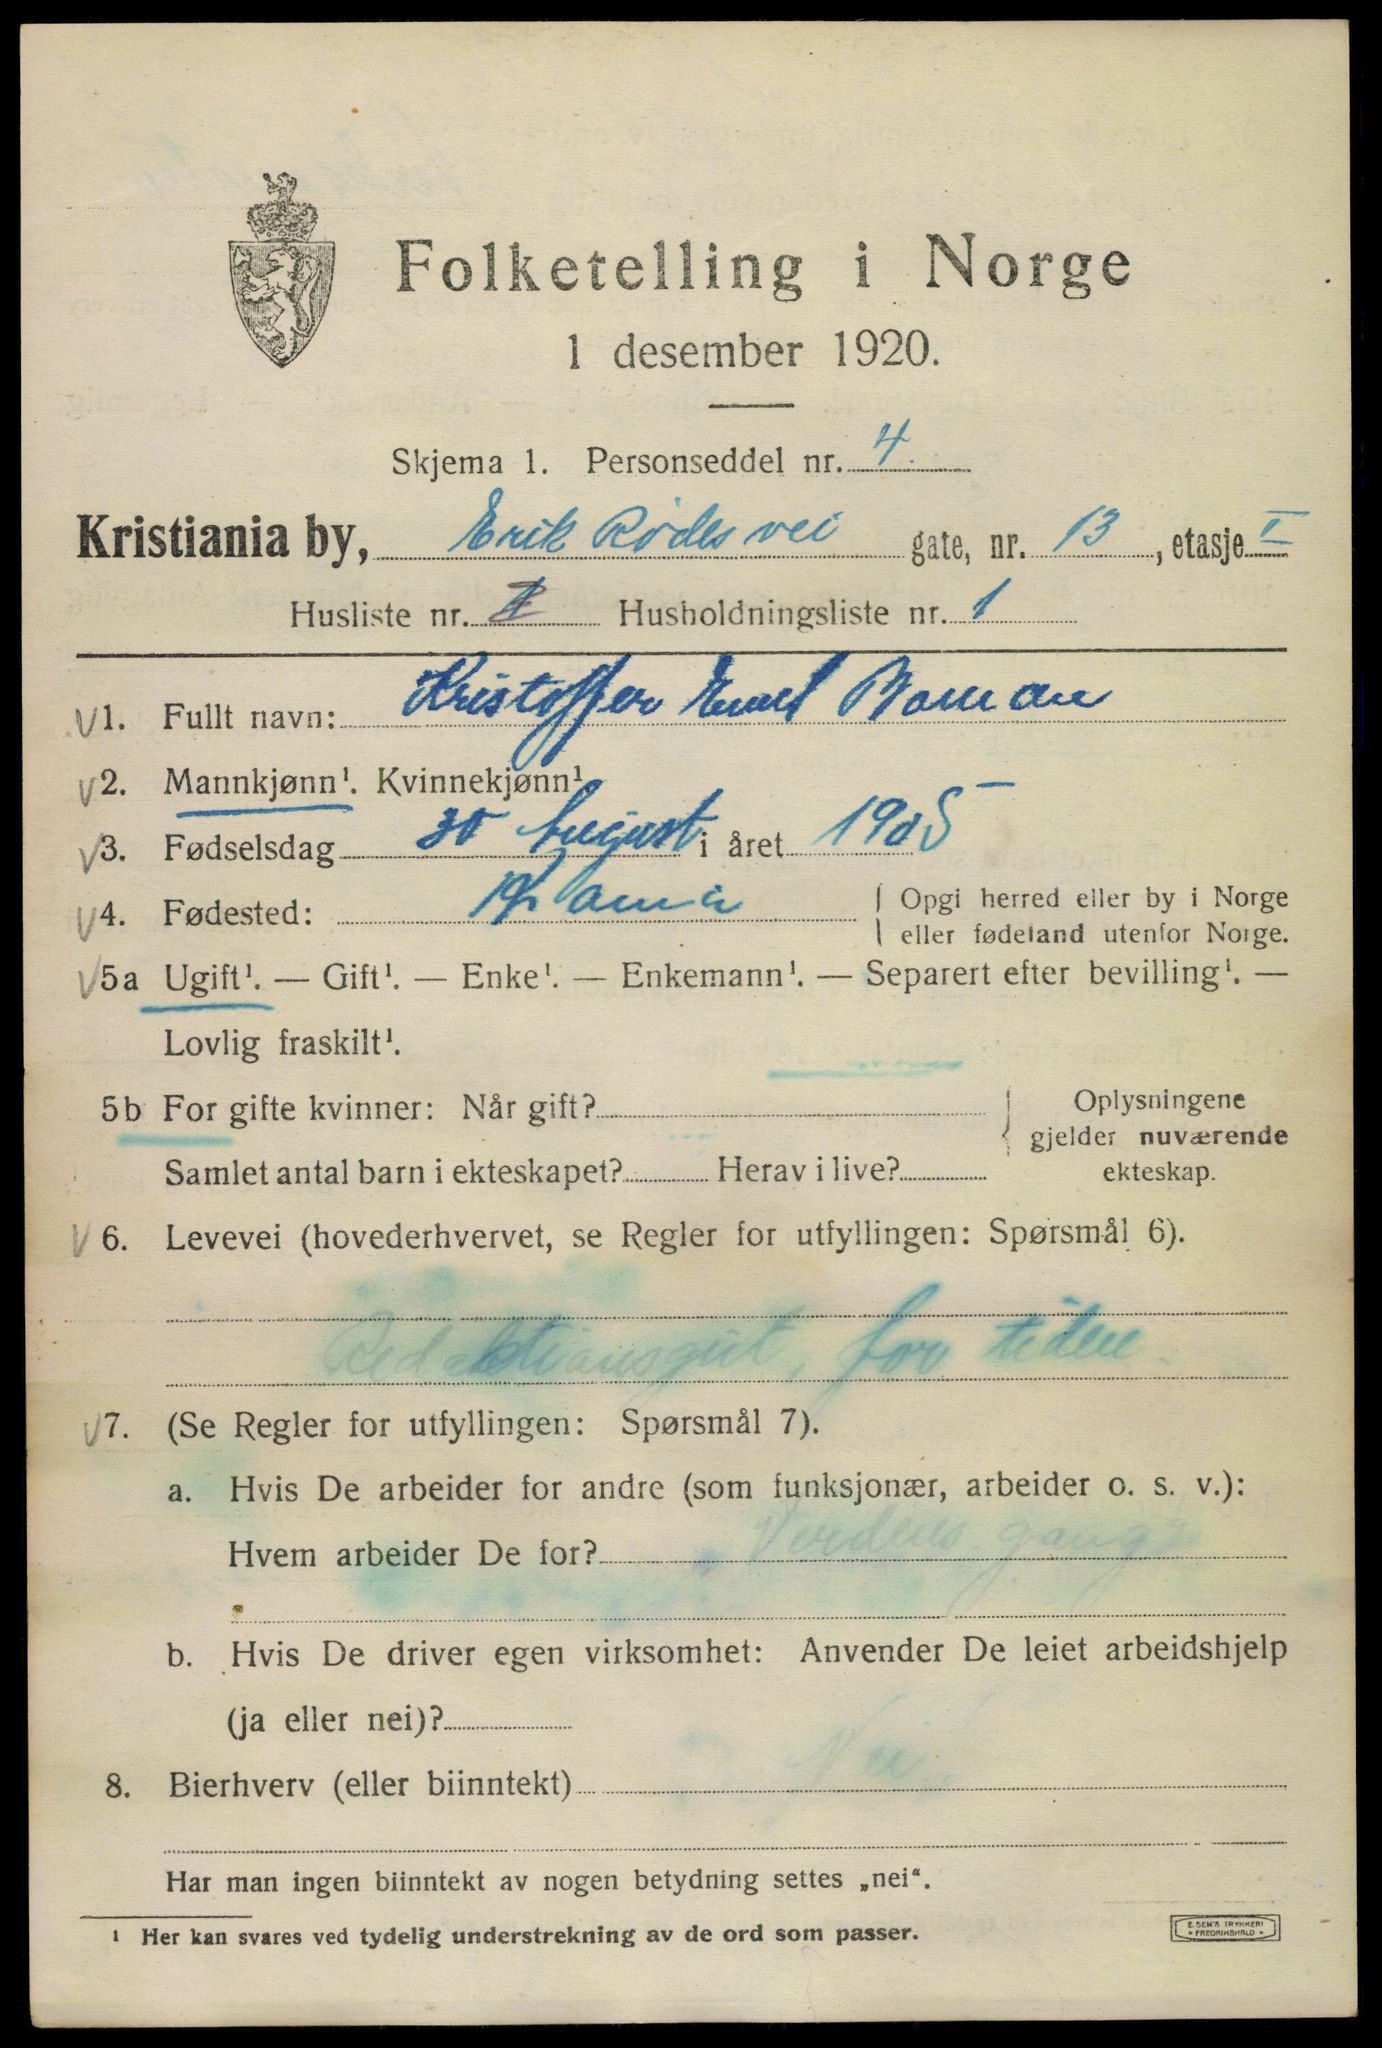 Folketelling i Norge
1 desember 1920.
Skjema 1. Personseddel nr. 4.
Kristiania by, Erik Rødes vei gate, nr. 13, etasje I
Husliste nr. Husholdningsliste nr. 1
1. Fullt navn: Kristoffer Emil Boman
2. Mannkjønn¹. Kvinnekjønn¹.
3. Fødselsdag 30 August i året 1905
4. Fødested: Kr.ania { Opgi herred eller by i Norge
eller fødeland utenfor Norge.
5a Ugift¹. — Gift¹. — Enke¹. — Enkemann¹. — Separert efter bevilling¹. —
Lovlig fraskilt¹.
5b For gifte kvinner: Når gift? { Oplysningene
gjelder nuværende
Samlet antal barn i ekteskapet? Herav i live? ekteskap.
6. Levevei (hovederhvervet, se Regler for utfyllingen: Spørsmål 6).
Redaktionsgut, for tiden
7. (Se Regler for utfyllingen: Spørsmål 7).
a. Hvis De arbeider for andre (som funksjonær, arbeider o. s. v.):
Hvem arbeider De for? Verdens gang
b. Hvis De driver egen virksomhet: Anvender De leiet arbeidshjelp
(ja eller nei)?
8. Bierhverv (eller biinntekt) Nei
Har man ingen biinntekt av nogen betydning settes „nei“.
¹ Her kan svares ved tydelig understrekning av de ord som passer.
E. SEM'S TRYKKERI
* FREDRIKSHALD *